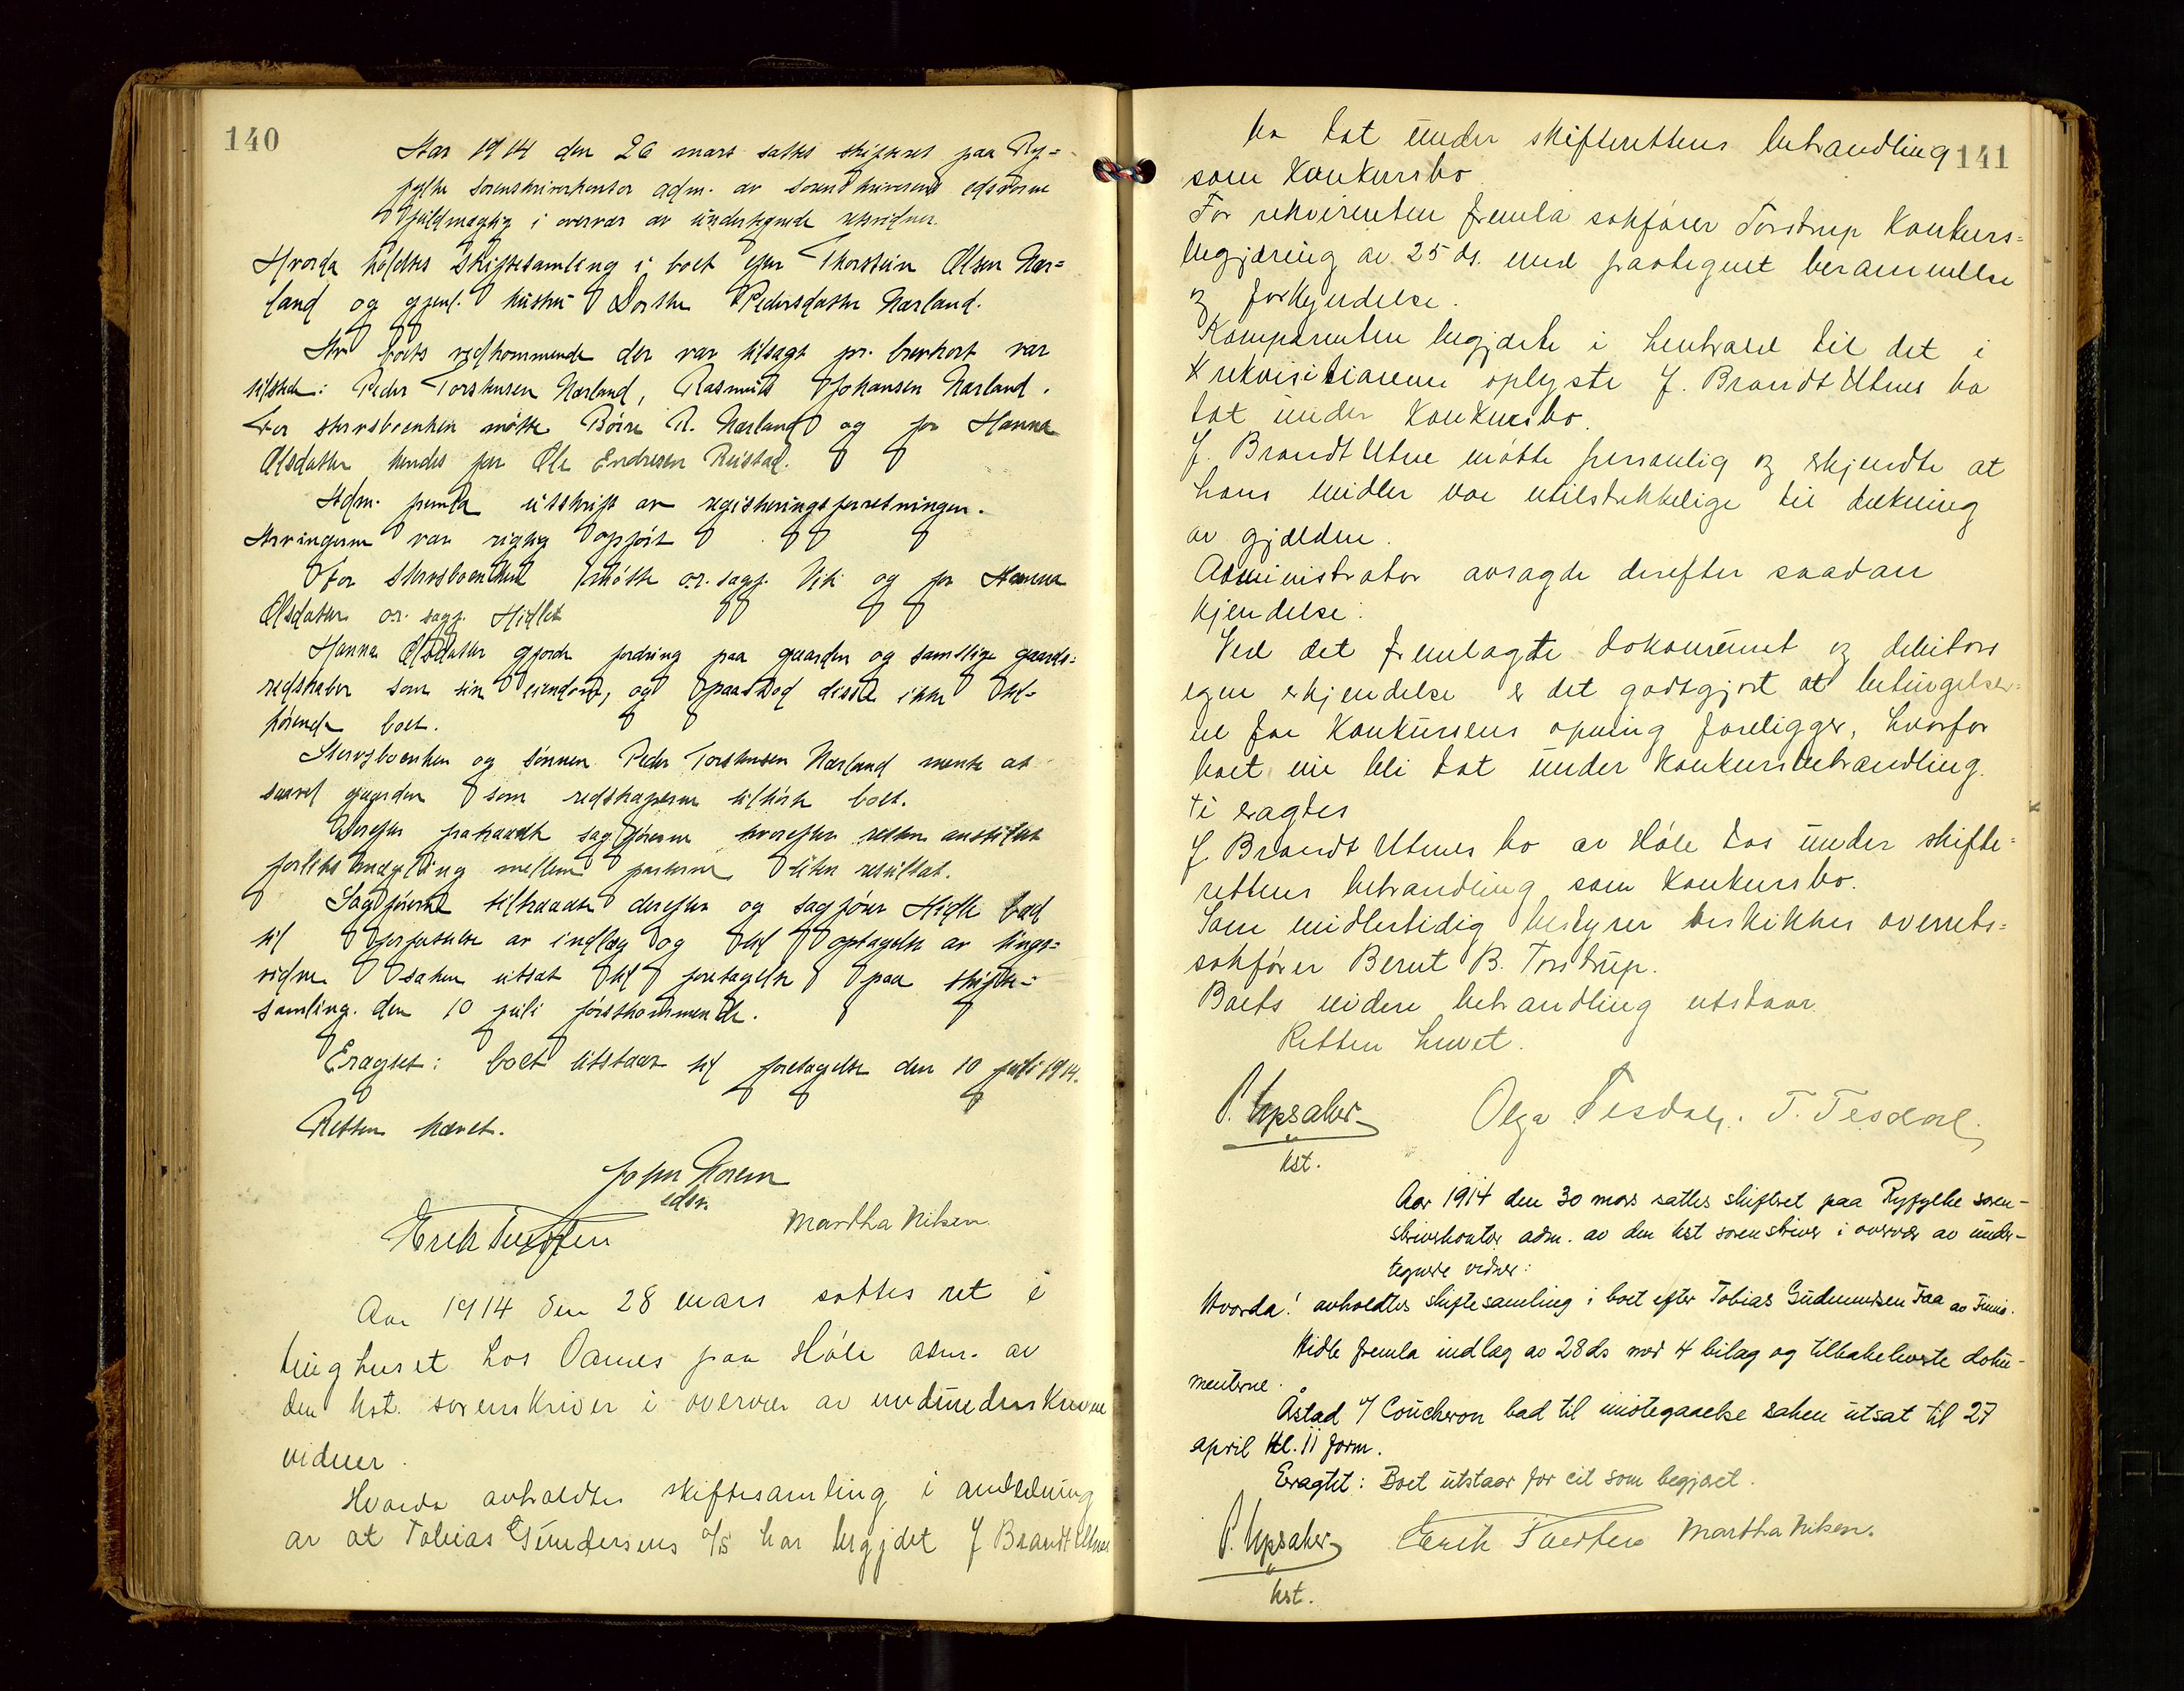 140
Aar 1914 den 26 mars sattes skifteret paa Ry=
fylke sorenskriverkontor adm. av sorenskriverens edsvorne
fuldmægtig i overvær av undertegnede retsvidner.
Hvorda holdtes skiftesamling i boet efter Thorstein Olsen Nær=
land og gjenl. hustru Dorthe Pedersdatter Nærland.
Av boets vedkommende der var tilsagt pr. brevkort var
tilstede: Peder Torstensen Nærland, Rasmus Johansen Nærland.
For stervboenken møtte Børre R. Nærland og for Hanna
Olsdatter hendes far Ole Endresen Reistad.
Adm. fremla utskrift av registreringsforretningen.
Arvingerne var rigtig opført
For stervboenken møtte o.r. sagf. Vik og for Hanna
Olsdatter o.r. sagf. Hidle
Hanna Olsdatter gjorde fordring paa gaarden og samtlige gaards=
redskaber som sin eiendom, og paastod disse ikke til=
hørende boet.
Stervboenken og sønnen Peder Torstensen Nærland mente at
saavel gaarden som redskaperne tilhørte boet.
Derefter fratraadte sagførerne hvorefter retten anstillet
forliksmægling mellem parterne uten resultat.
Sagførerne tiltraadte derefter og sagfører Hidle bad
til forfattelse av indlæg og til optagelse av tings=
vidne saken utsat til foretagelse paa skifte=
samling den 10 juli førstkommende.
Eragtet: boet utstaar til foretagelse den 10 juli 1914.
Retten hævet.
John Norem
edsv.
Martha Nilsen.
Aar 1914 den 28 mars sattes ret i
tinghuset hos Oanes paa Høle adm. av
den kst. sorenskriver i overvær av
vidner.
Hvorda avholdtes skiftesamling i anledning
av at Tobias Gundersens A/S har begjært J Brandt Utnes
141
bo tat under skifterettens behandling
som konkursbo
For rekvirenten fremla sakfører Torstrup konkurs=
begjæring av 25 ds. med paategnet berammelse
og forkyndelse.
Komparenten begjærte i henhold til det i
rekvisitionen oplyste J. Brandt Utnes bo
tat under konkursbo.
J. Brandt Utne møtte personlig og erkjendte at
hans midler var utilstrekkelige til dekning
av gjælden.
Administrator avsagde derefter saadan
kjendelse:
Ved det fremlagte dokument og debitors
egen erkjendelse er det godtgjort at betingelser=
ne for konkursens apning foreligger, hvorfor
boet vil bli tat under konkursbehandling.
Ti eragtes
J. Brandt Utnes bo av Høle tas under skifte=
rettens behandling som konkursbo.
Som midlertidig bestyrer beskikkes overrets=
sakfører Bernt B. Torstrup.
Boets videre behandling utstaar.
Retten hevet.
P. Upsaker
kst.
Olga Tesdal. T. Tesdal.
Aar 1914 den 30 mars sattes skifteret paa Ryfylke soren-
skriverkontor adm. av den kst sorenskriver i overvær av under-
tegnede vidner:
Hvorda! avholdtes skiftesamling i boet efter Tobias Gudmundsen Faa av
Hidle fremla indlæg av 28 ds med 4 bilag og tilbakeleverte doku-
menterne.
Åstad f/ Coucheron bad til imøtegaaelse saken utsat til 27
april kl. 11 form.
Eragtet: Boet utstaar for eit som begjæret.
P. Upsaker
kst.
Martha Nilsen.